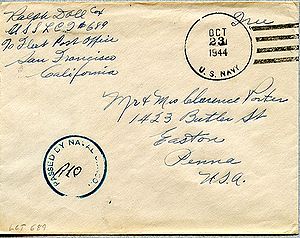 Ralph Doll Cox
USS LCI #689
℅ Fleet Post Office
San Francisco
California
Free
OCT
23
1944
U. S. NAVY
Mr & Mrs Clarence Porter
1423 Butler St
Easton
Penna
U.S.A.
PASSED BY NAVAL
LCT 689